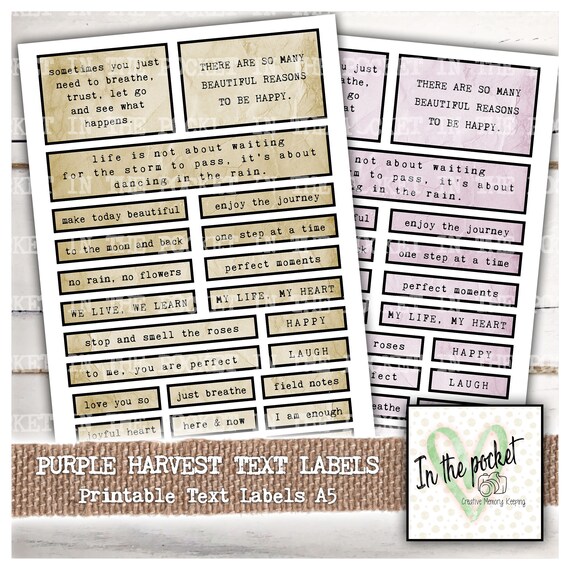 sometimes you just
need to breathe,
trust, let go
and see what
happens.
THERE ARE SO MANY
BEAUTIFUL REASONS
TO BE HAPPY.
life is not about waiting
for the storm to pass, it's about
dancing in the rain.
make today beautiful
enjoy the journey
to the moon and back
one step at a time
no rain, no flowers
perfect moments
WE LIVE, WE LEARN
MY LIFE, MY HEART
stop and smell the roses
HAPPY
to me, you are perfect
LAUGH
love you so
just breathe
field notes
joyful heart
here & now
I am enough
just
breathe,
let go
what
THERE ARE SO MANY
BEAUTIFUL REASONS
TO BE HAPPY.
not about waiting
to pass, it's about
in the rain.
enjoy the journey
one step at a time
perfect moments
MY LIFE, MY HEART
roses
HAPPY
perfect
LAUGH
PURPLE HARVEST TEXT LABELS
Printable Text Labels A5
In the pocket
Creative Memory Keeping